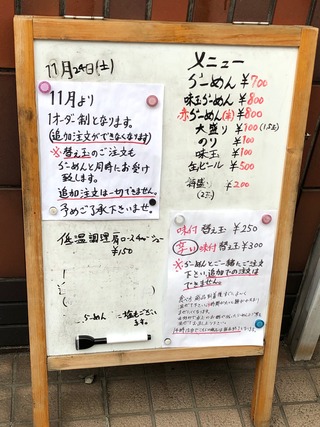 11月24日(土)
11月より
1オーダー制となります。
(追加注文ができなくなります)
※替え玉のご注文も
らーめんと同時にお受け
致します。
追加注文は一切できません。
予めご了承下さいませ。
低温調理肩ロースチャーシュー
¥150
らーめん
塩もござい
ます。
メニュー
らーめん ¥700
味玉らーめん ¥800
赤らーめん(辛) ¥800
大盛り ¥100(1.5玉)
のり ¥100
味玉 ¥100
生ビール ¥500
特盛り ¥200
(2玉)
味付 替え玉 ¥250
辛い味付 替え玉 ¥300
※らーめんとご一緒にご注文
下さい。追加での注文は
できません。